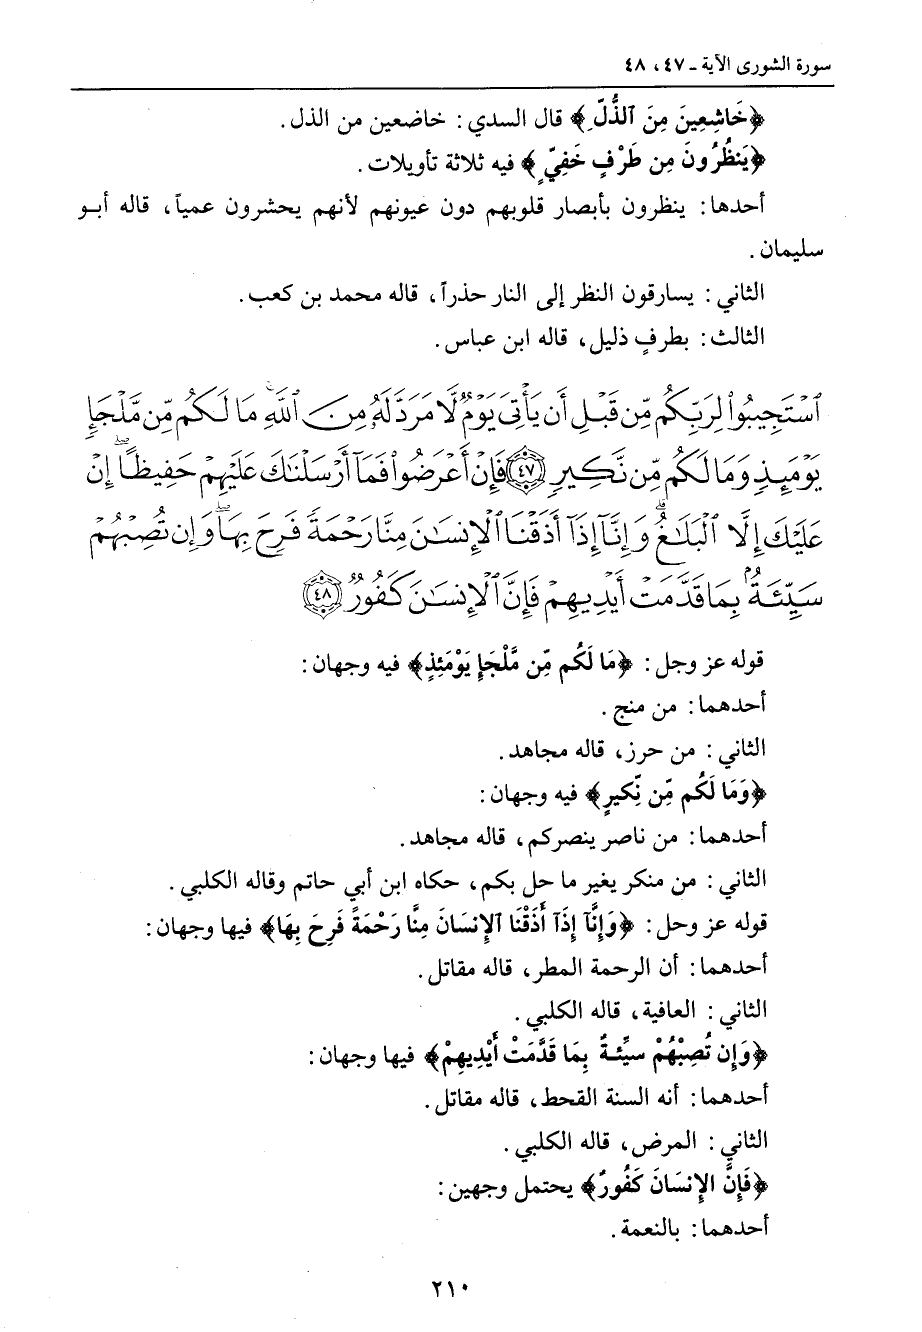 سورة الشورى الآية ـ ٤٧ ، ٤٨
﴿خَاشِعِينَ مِنَ ٱلذُّلِّ﴾ قال السدي : خاضعين من الذل .
﴿يَنظُرُونَ مِن طَرْفٍ خَفِيٍّ﴾ فيه ثلاثة تأويلات .
أحدها : ينظرون بأبصار قلوبهم دون عيونهم لأنهم يحشرون عمياً ، قاله أبـو
سليمان .
الثاني : يسارقون النظر إلى النار حذراً ، قاله محمد بن كعب .
الثالث : بطرفٍ ذليل ، قاله ابن عباس .
ٱسْتَجِيبُوا۟ لِرَبِّكُم مِّن قَبْلِ أَن يَأْتِىَ يَوْمٌ لَّا مَرَدَّ لَهُۥ مِنَ ٱللَّهِ ۚ مَا لَكُم مِّن مَّلْجَإٍ
يَوْمَئِذٍ وَمَا لَكُم مِّن نَّكِيرٍ ﴿٤٧﴾ فَإِنْ أَعْرَضُوا۟ فَمَآ أَرْسَلْنَـٰكَ عَلَيْهِمْ حَفِيظًا ۖ إِنْ
عَلَيْكَ إِلَّا ٱلْبَلَـٰغُ ۗ وَإِنَّآ إِذَآ أَذَقْنَا ٱلْإِنسَـٰنَ مِنَّا رَحْمَةً فَرِحَ بِهَا ۖ وَإِن تُصِبْهُمْ
سَيِّئَةٌۢ بِمَا قَدَّمَتْ أَيْدِيهِمْ فَإِنَّ ٱلْإِنسَـٰنَ كَفُورٌ ﴿٤٨﴾
قوله عز وجل : ﴿مَا لَكُم مِّن مَّلْجَإٍ يَوْمَئِذٍ﴾ فيه وجهان :
أحدهما : من منج .
الثاني : من حرز ، قاله مجاهد .
﴿وَمَا لَكُم مِّن نَّكِيرٍ﴾ فيه وجهان :
أحدهما : من ناصر ينصركم ، قاله مجاهد .
الثاني : من منكر يغير ما حل بكم ، حكاه ابن أبي حاتم وقاله الكلبي .
قوله عز وحل : ﴿وَإِنَّآ إِذَآ أَذَقْنَا ٱلإِنسَانَ مِنَّا رَحْمَةً فَرِحَ بِهَا﴾ فيها وجهان :
أحدهما : أن الرحمة المطر ، قاله مقاتل .
الثاني : العافية ، قاله الكلبي .
﴿وَإِن تُصِبْهُمْ سيِّئَةٌ بِمَا قَدَّمَتْ أَيْدِيهِمْ﴾ فيها وجهان :
أحدهما : أنه السنة القحط ، قاله مقاتل .
الثاني : المرض ، قاله الكلبي .
﴿فَإِنَّ الإِنسَانَ كَفُورٌ﴾ يحتمل وجهين :
أحدهما : بالنعمة .
٢١٠